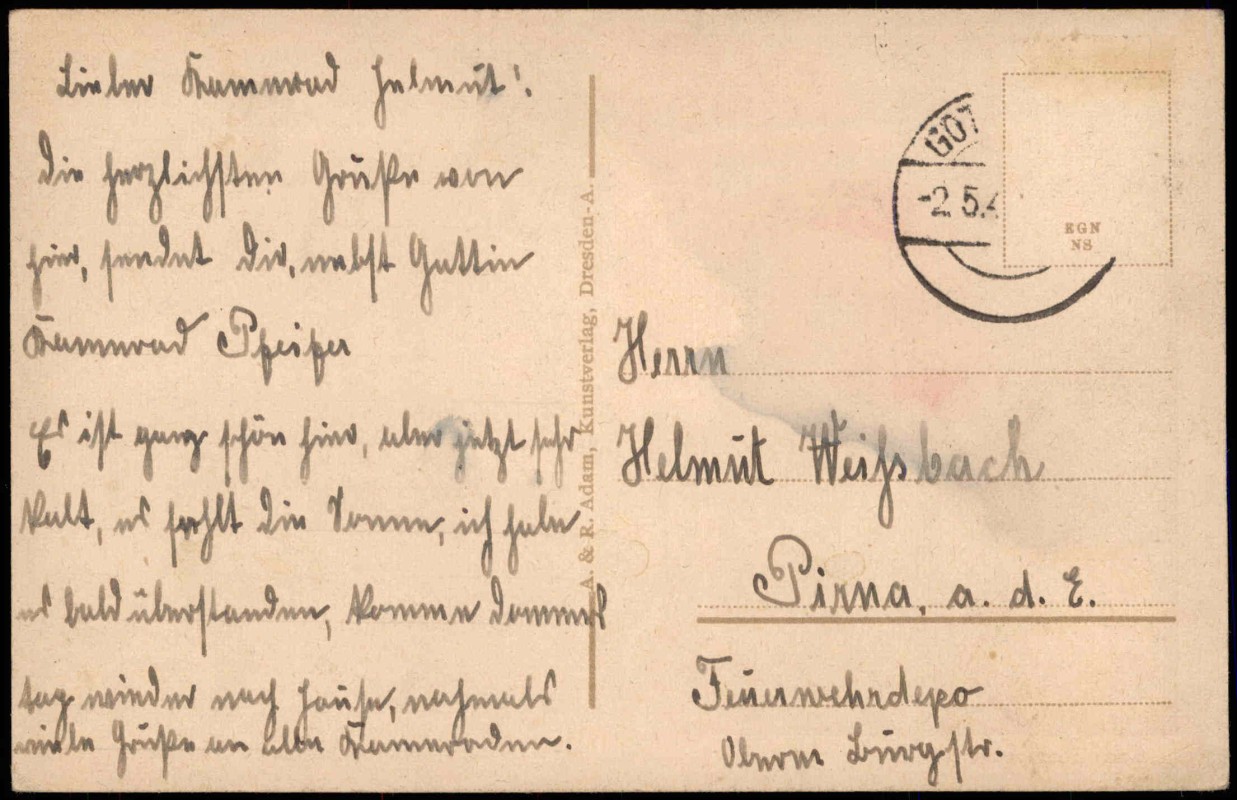 Lieber Kammrad Helmut!
Die herzlichsten Grüße von
hier, sendet Dir, nebst Gattin
Kammrad Pfeifer
Es ist ganz schön hier, aber jetzt sehr
kalt, es fehlt die Sonne, ich habe
es bald überstanden, komme Donners
tag wieder nach Hause, nochmals
viele Grüße an alle Kameraden.
A. & R. Adam, Kunstverlag, Dresden-A.
GOT
-2.5.4
EGN
NS
Herrn
Helmut Weißbach
Pirna, a. d. E.
Feuerwehrdepo
Obere Burgstr.